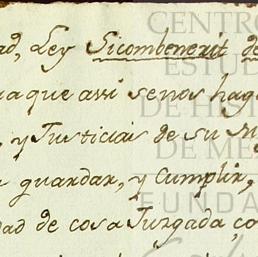 ad, Ley Sicombenerit de
ua que assi se nos hag
, y Justicias de su M
guardar, y Cumplir,
dad de cosa Juzgada, co
CENTRO
ESTUD
DE HIS
DE ME
FUNDA